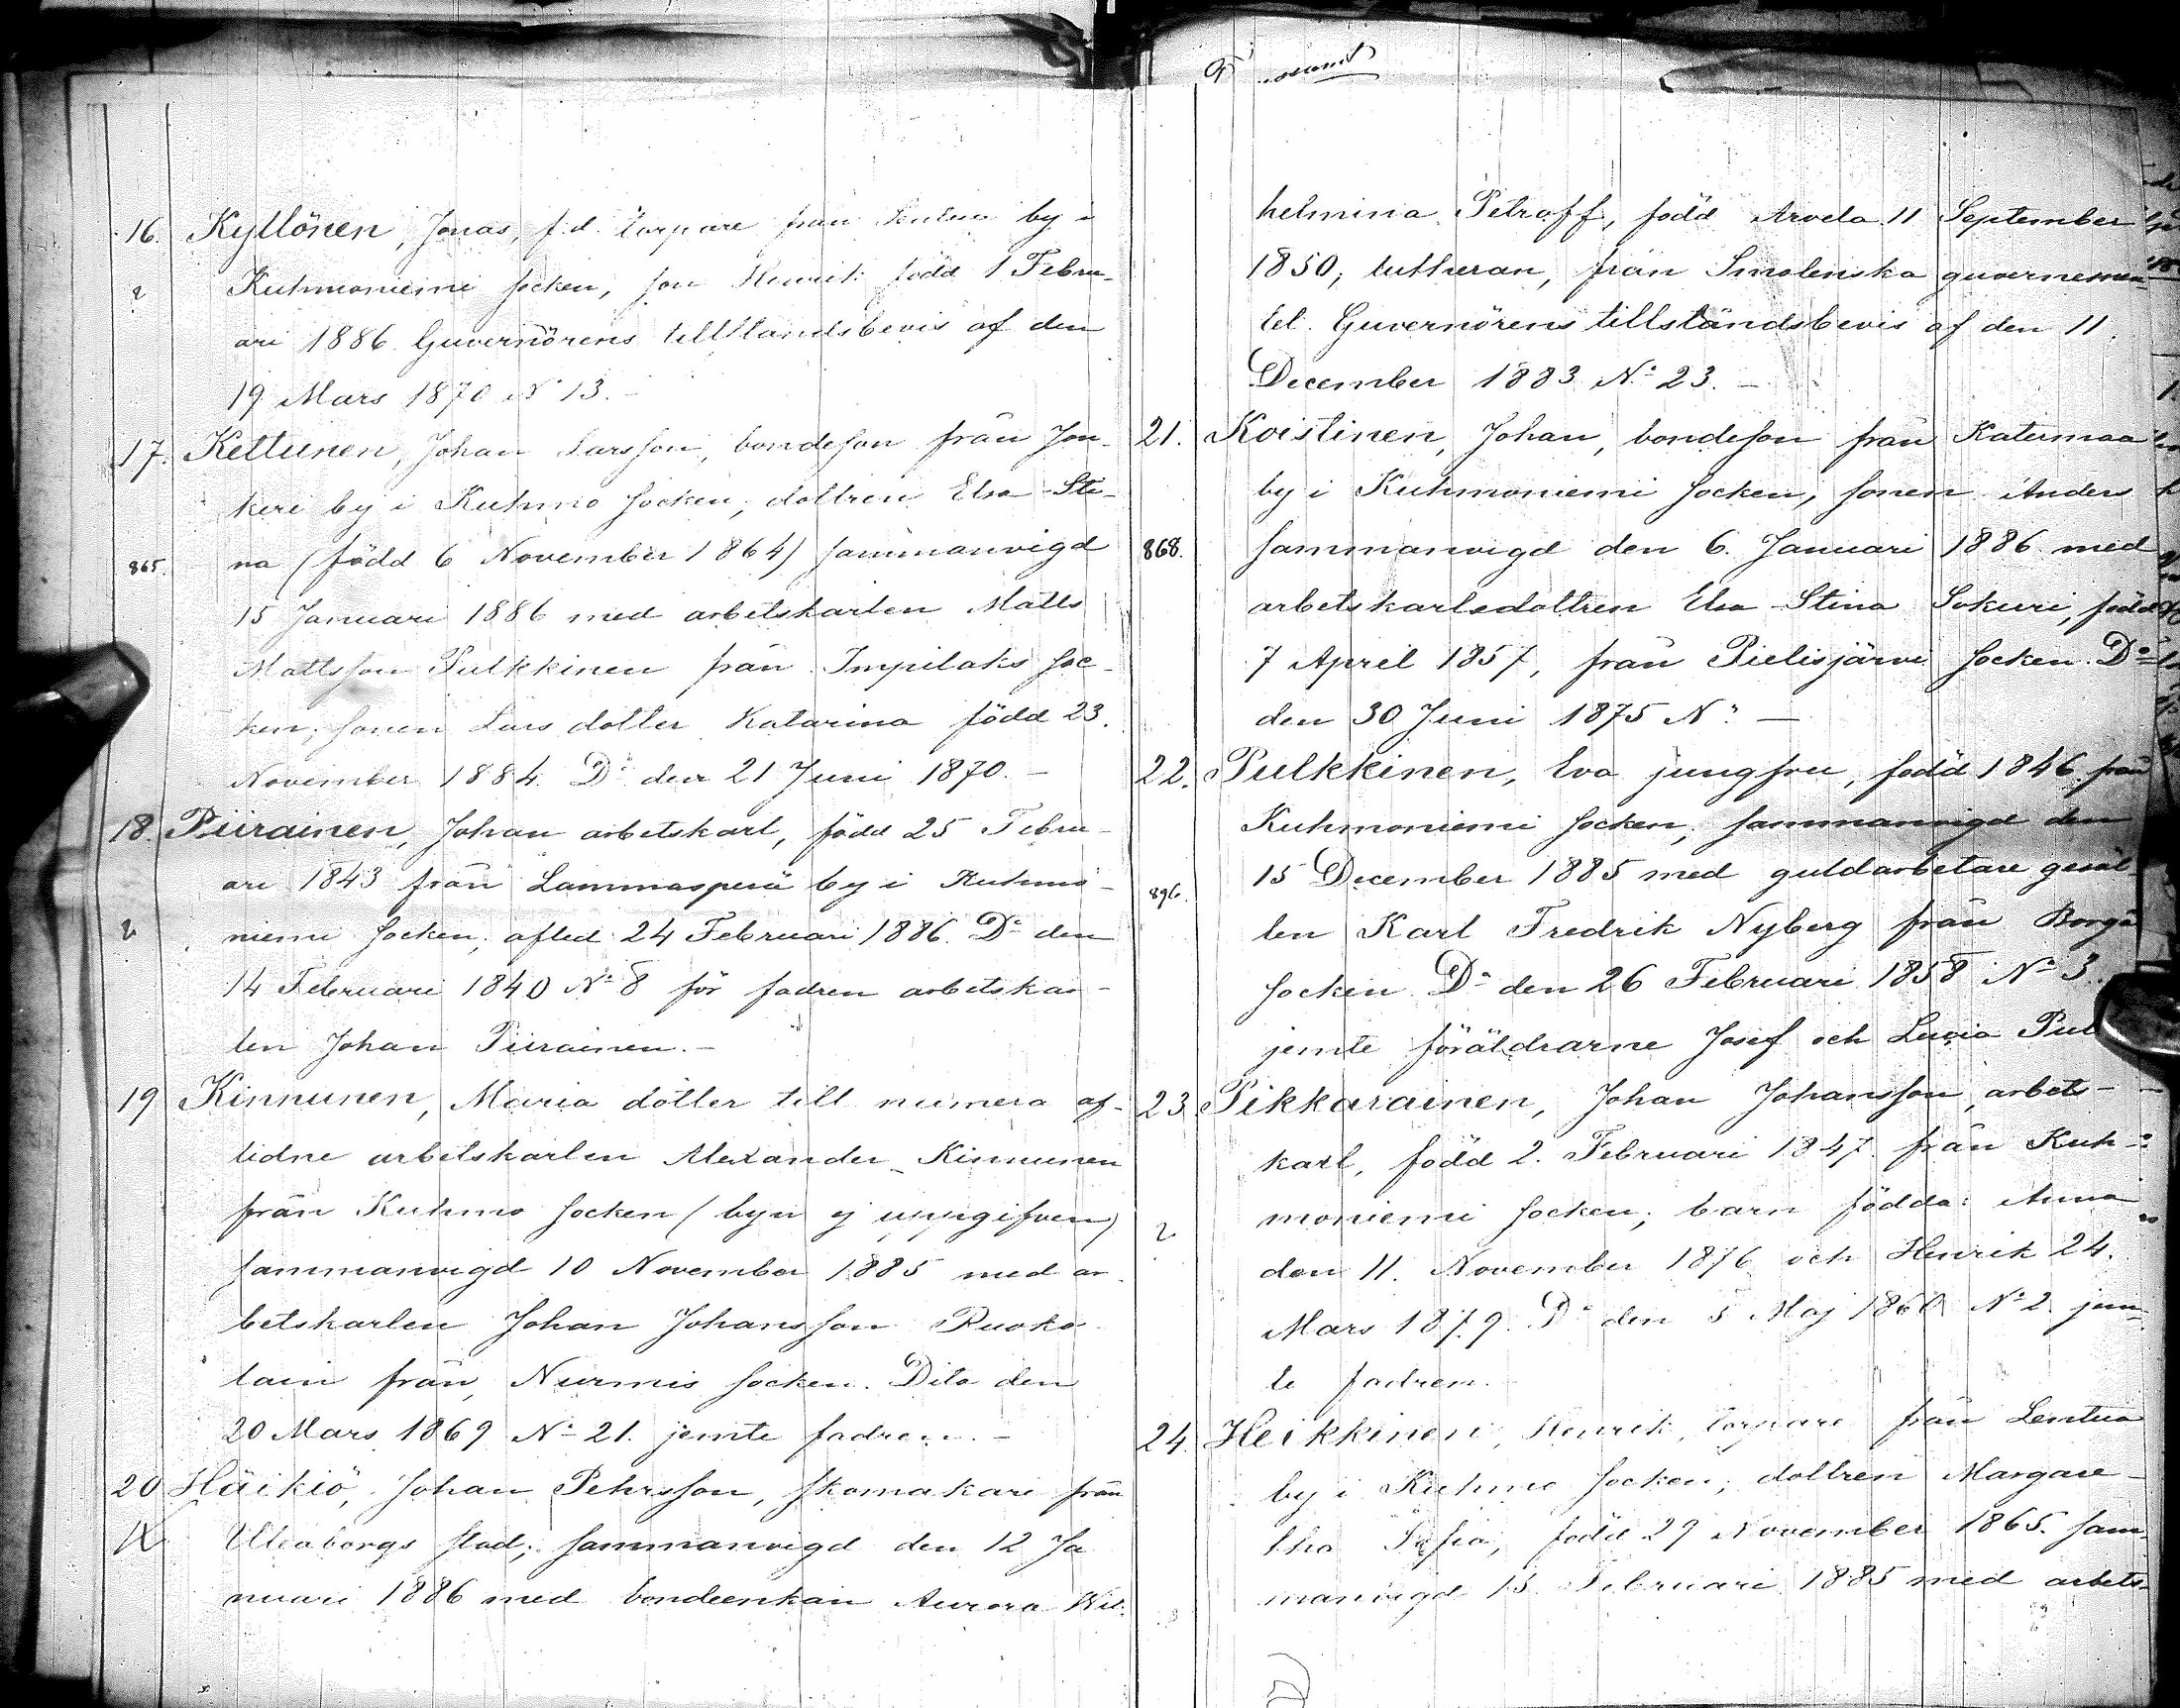 16. Kyllönen, Jonas, f.d. torpare från Lentua by i
2 Kuhmoniemi socken, son Henrik född 1 Febru-
ari 1886. Guvernörens tillståndsbevis af den
19 Mars 1870 No 13. -
17. Kettunen, Johan Larsson, bondeson från Jon-
keri by i Kuhmo socken, dottren Elsa Sti-
865. na (född 6 November 1864) sammanvigd
15 Januari 1886 med arbetskarlen Matts
Mattsson Pulkkinen från Impilaks soc-
ken; sonen Lars dotter Katarina född 23.
November 1884. Do den 21 Juni 1870. -
18. Piirainen, Johan arbetskarl, född 25 Febru-
ari 1843 från Lammasperä by i Kuhmo-
2 niemi socken; afled 24 Februari 1886. Do den
14 Februari 1840 No 8 för fadren arbetskar-
len Johan Piirainen. -
19 Kinnunen, Maria dotter till numera af-
lidne arbetskarlen Alexander Kinnunen
från Kuhmo socken (byn ej uppgifven)
sammanvigd 10 November 1885 med ar-
betskarlen Johan Johansson Ruoko-
lain från Nurmis socken. Dito den
20 Mars 1869 No 21. jemte fadren. -
20 Häikiö, Johan Pehrsson, skomakare från
Uleaborgs stad; sammanvigd den 12 Ja
nuari 1886 med bondeenkan Aurora Wil-
helmina Petroff, född Arvela 11 September
1850, lutheran, från Smolenska guvernemen-
tet. Guvernörens tillståndsbevis af den 11.
December 1883 No 23. -
21. Koistinen, Johan, bondeson från Katermaa
by i Kuhmoniemi socken, sonen Anders
868. sammanvigd den 6. Januari 1886 med
arbetskarlsdottren Elsa Stina Sokuri, född
7 April 1857, från Pielisjärvi socken. Do
den 30 Juni 1875 No -
22. Pulkkinen, Eva jungfru, född 1846 från
Kuhmoniemi socken; sammanvigd den
896. 15 December 1885 med guldarbetare gesäl-
len Karl Fredrik Nyberg från Borgå
socken. Do den 26 Februari 1858 No 3.
jemte föräldrarne Josef och Lucia Pul
23 Pikkarainen, Johan Johansson, arbets-
karl, född 2. Februari 1847 från Kuh-
2 moniemi socken; barn födda: Anna
den 11. November 1876 och Henrik 24.
Mars 1879. Do den 5 Maj 1860 No 2 jem-
te fadren.
24. Heikkinen, Henrik, torpare från Lentua
by i Kuhmo socken; dottren Margare-
tha Sofia, född 29 November 1865. sam
manvigd 15 Februari 1885 med arbets-